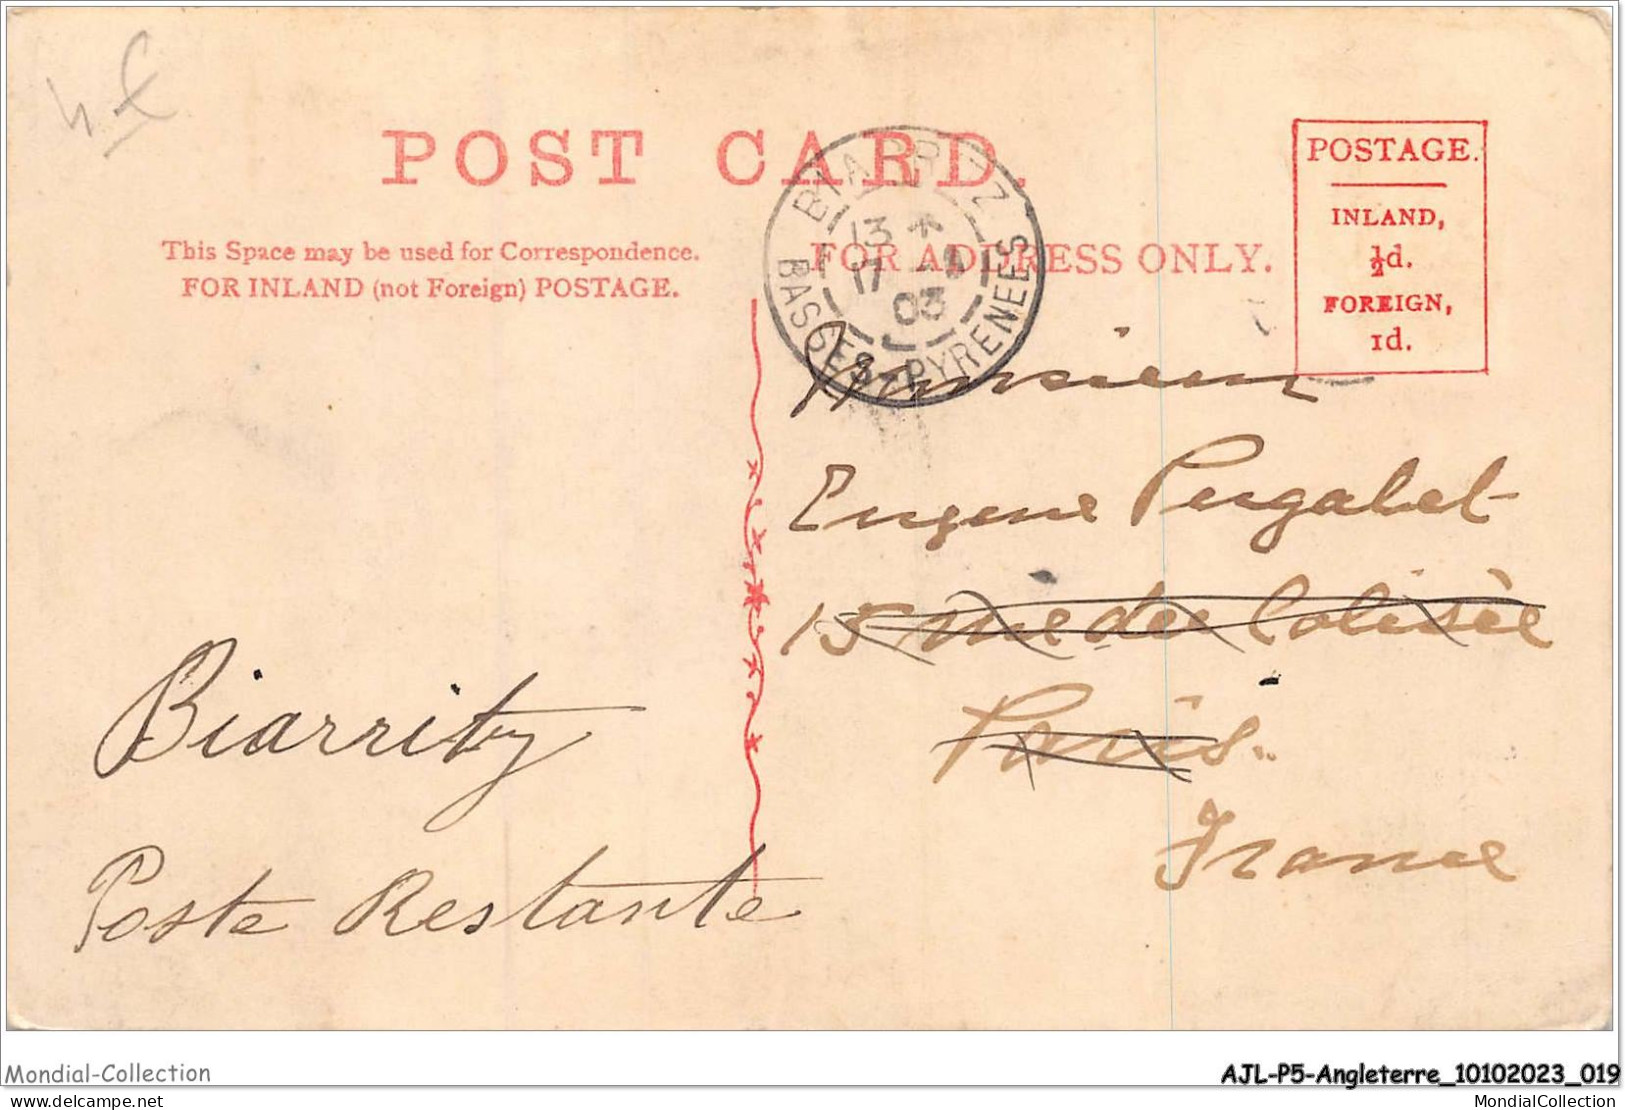 POST CARD.
This Space may be used for Correspondence.
FOR INLAND (not Foreign) POSTAGE.
FOR ADDRESS ONLY.
POSTAGE.
INLAND,
½d.
FOREIGN,
1d.
BIARRITZ
13
17
03
BASSES-PYRENEES
Monsieur
Eugene Pugalet
15 rue du Colisèe
Paris.
France
Biarritz
Poste Restante
Mondial-Collection
AJL-P5-Angleterre_10102023_019
delcampe.net
MondialCollection